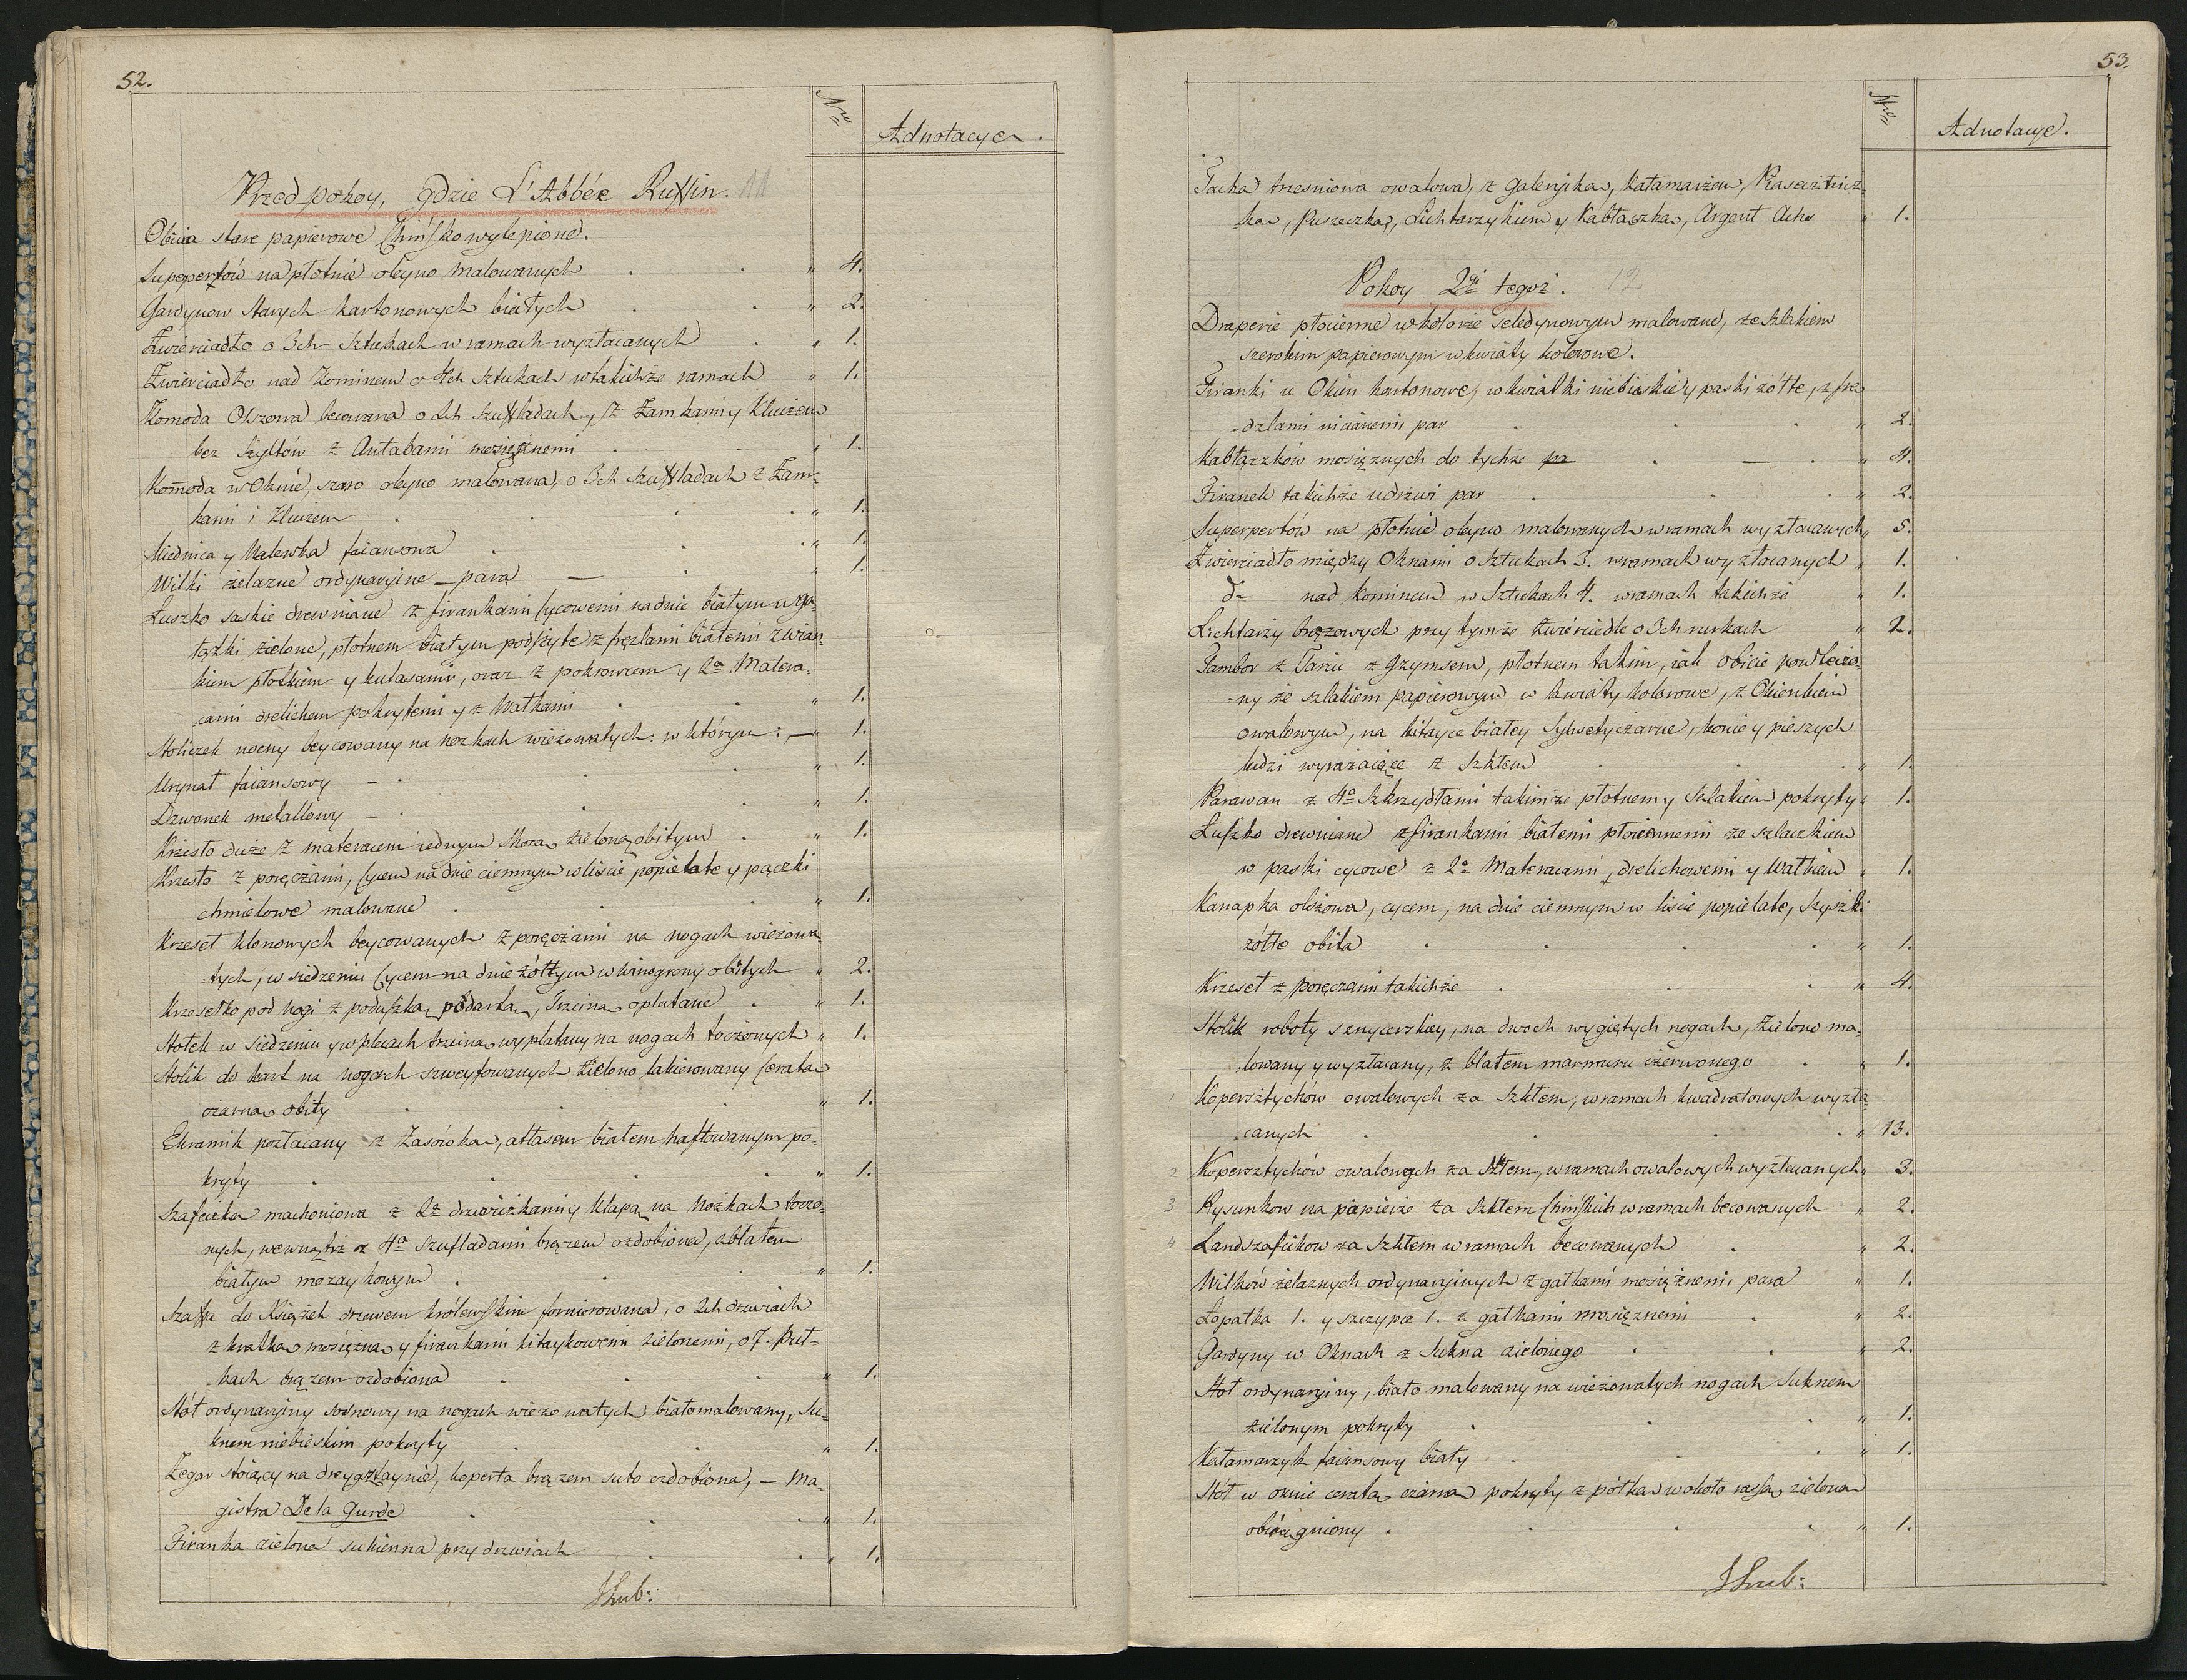 52.
Nro
Adnotacye.
Przed pokoy, gdzie L'Abbée Ruffin. 11
Obicia stare papierowe Chińsko wylepione.
Supepertów na płotnie oleyno malowanych " 4.
Gardynow starych kartonowych białych " 2.
Zwierciadło o 3ch Sztukach w ramach wyzłacanych " 1.
Zwierciadło nad Kominem o 4ch sztukach w takichże ramach " 1.
Komoda Olszowa becowana o 2ch szufladach, z Zamkami y Kluczem
bez szyltów z Antabami mosiężnemi " 1.
Komoda w Oknie, szaro oleyno malowana, o 3ch szufladach z Zam-
kami i Kluczem " 1.
Miednica y Nalewka faiansowa " 1.
Wilki żelazne ordynaryine - para " 1.
Łuszko saskie drewniane z firankami cycowemi na dnie białym w ga-
łązki zielone, płotnem białym podszyte z fręzlami białemi z wian-
kiem płotkiem y kutasami, oraz z pokrowcem y 2a Matera-
cami drelichem pokrytemi y z Wałkami " 1.
Stoliczek nocny beycowany na nozkach wieżowatych: w którym: - " 1.
Urynał faiansowy - " 1.
Dzwonek metallowy - " 1.
Krzesło duże z materacem iednym skorą zieloną obitym " 1.
Krzesło z poręczami, Cycem na dnie ciemnym w liście popielate y pączki
chmielowe malowane " 1.
Krzeseł klonowych beycowanych z poręczami na nogach wieżowa-
tych, w siedzeniu Cycem na dnie żółtym w Winogrony obitych " 2.
Krzesełko pod nogi z poduszką podartą, Trzciną oplatane " 1.
Stołek w siedzeniu y w plecach trzciną wyplatany na nogach toczonych " 1.
Stolik do kart na nogach szweyfowanych Zielono lakierowany Ceratą
czarną obity " 1.
Ekranik pozłacany z Zasówką, atłasem białem haftowanym po-
kryty " 1.
Szafeczka machoniowa z 2a drzwiczkami y klapą na Nożkach toczo-
nych, wewnątrz z 4a Szufladami brązem ozdobiona, z blatem
białym mozaykowym " 1.
Szaffa do Książek drzewem królewskim fornierowana, o 2ch drzwiach
z kratką mosiężną y firankami kitaykowemi zielonemi, o 7. Puł-
kach brązem ozdobiona " 1.
Stół ordynaryiny sosnowy na nogach wieżowatych biało malowany, Su-
knem niebieskim pokryty " 1.
Zegar stoiący na dreygsztaynie, koperta brązem suto ozdobiona, - Ma-
gistra De la Gurde " 1.
Firanka zielona sukienna przy drzwiach " 1.
JLub:
53.
Nro
Adnotacye.
Tacka trzesniowa owalowa, z Galeryjką, Kałamarzem, Piasecznicz-
ką, Puszeczką, Lichtarzykiem y Kabłączką, Argent Aché " 1.
Pokoy 2gi tegoż. 12
Draperie płócienne w kolorze seledynowym malowane, ze Szlakiem
szerokim papierowym w kwiaty kolorowe.
Firanki u Okien kartonowe, w kwiatki niebieskie y paski żółte, z frę-
dzlami nicianemi par " 2.
Kabłączków mosiężnych do tychże pa " 4.
Firanek takichże u drzwi par " 2.
Superpertów na płotnie oleyno malowanych w ramach wyzłacanych " 5.
Zwierciadło między Oknami o Sztukach 3. w ramach wyzłacanych " 1.
do nad Kominem w Sztukach 4. w ramach takichże " 1.
Lichtarzy brązowych przy tymże Zwierciedle o 3ch rurkach " 2.
Tambor z Tarcic z Gzymsem, płotnem takim, iak obicie powleczo-
ny ze szlakiem papierowym w kwiaty kolorowe, z Okienkiem
owalowym, na kitayce białey Sylwety czarne, konie y pieszych
ludzi wyrażaiące z Szkłem " 1.
Parawan z 4a Szkrzydłami takimże płotnem y Szlakiem pokryty " 1.
Łuszko drewniane z firankami białemi płociennemi ze szlaczkiem
w paski cycowe z 2a Materacami drelichowemi y Wałkiem " 1.
Kanapka olszowa, cycem, na dnie ciemnym w liście popielate, szyszki
żółte obita " 1.
Krzeseł z poręczami takichże " 4.
Stolik roboty snycerskiey, na dwoch wygiętych nogach, Zielono ma-
lowany y wyzłacany, z blatem marmuru czerwonego " 1.
1 Kopersztychów owalowych za Szkłem, w ramach kwadratowych wyzła-
canych " 13.
2 Kopersztychów owalowych za Szkłem, w ramach owalowych wyzłacanych " 3.
3 Rysunkow na papierze za Szkłem Chińskich w ramach becowanych " 2.
4 Landszafcikow za Szkłem w ramach becowanych " 2.
Wilków żelaznych ordynaryinych z gałkami mosiężnemi para " 1.
Łopatka 1. y szczypce 1. z gałkami mosiężnemi " 2.
Gardyny w Oknach z Sukna zielonego " 2.
Stoł ordynaryiny, biało malowany na wieżowatych nogach Suknem
zielonym pokryty " 1.
Kałamarzyk faiansowy biały " 1.
Stół w oknie ceratą czarną pokryty z półką wokoło rassą zieloną
obciągniony " 1.
JLub: